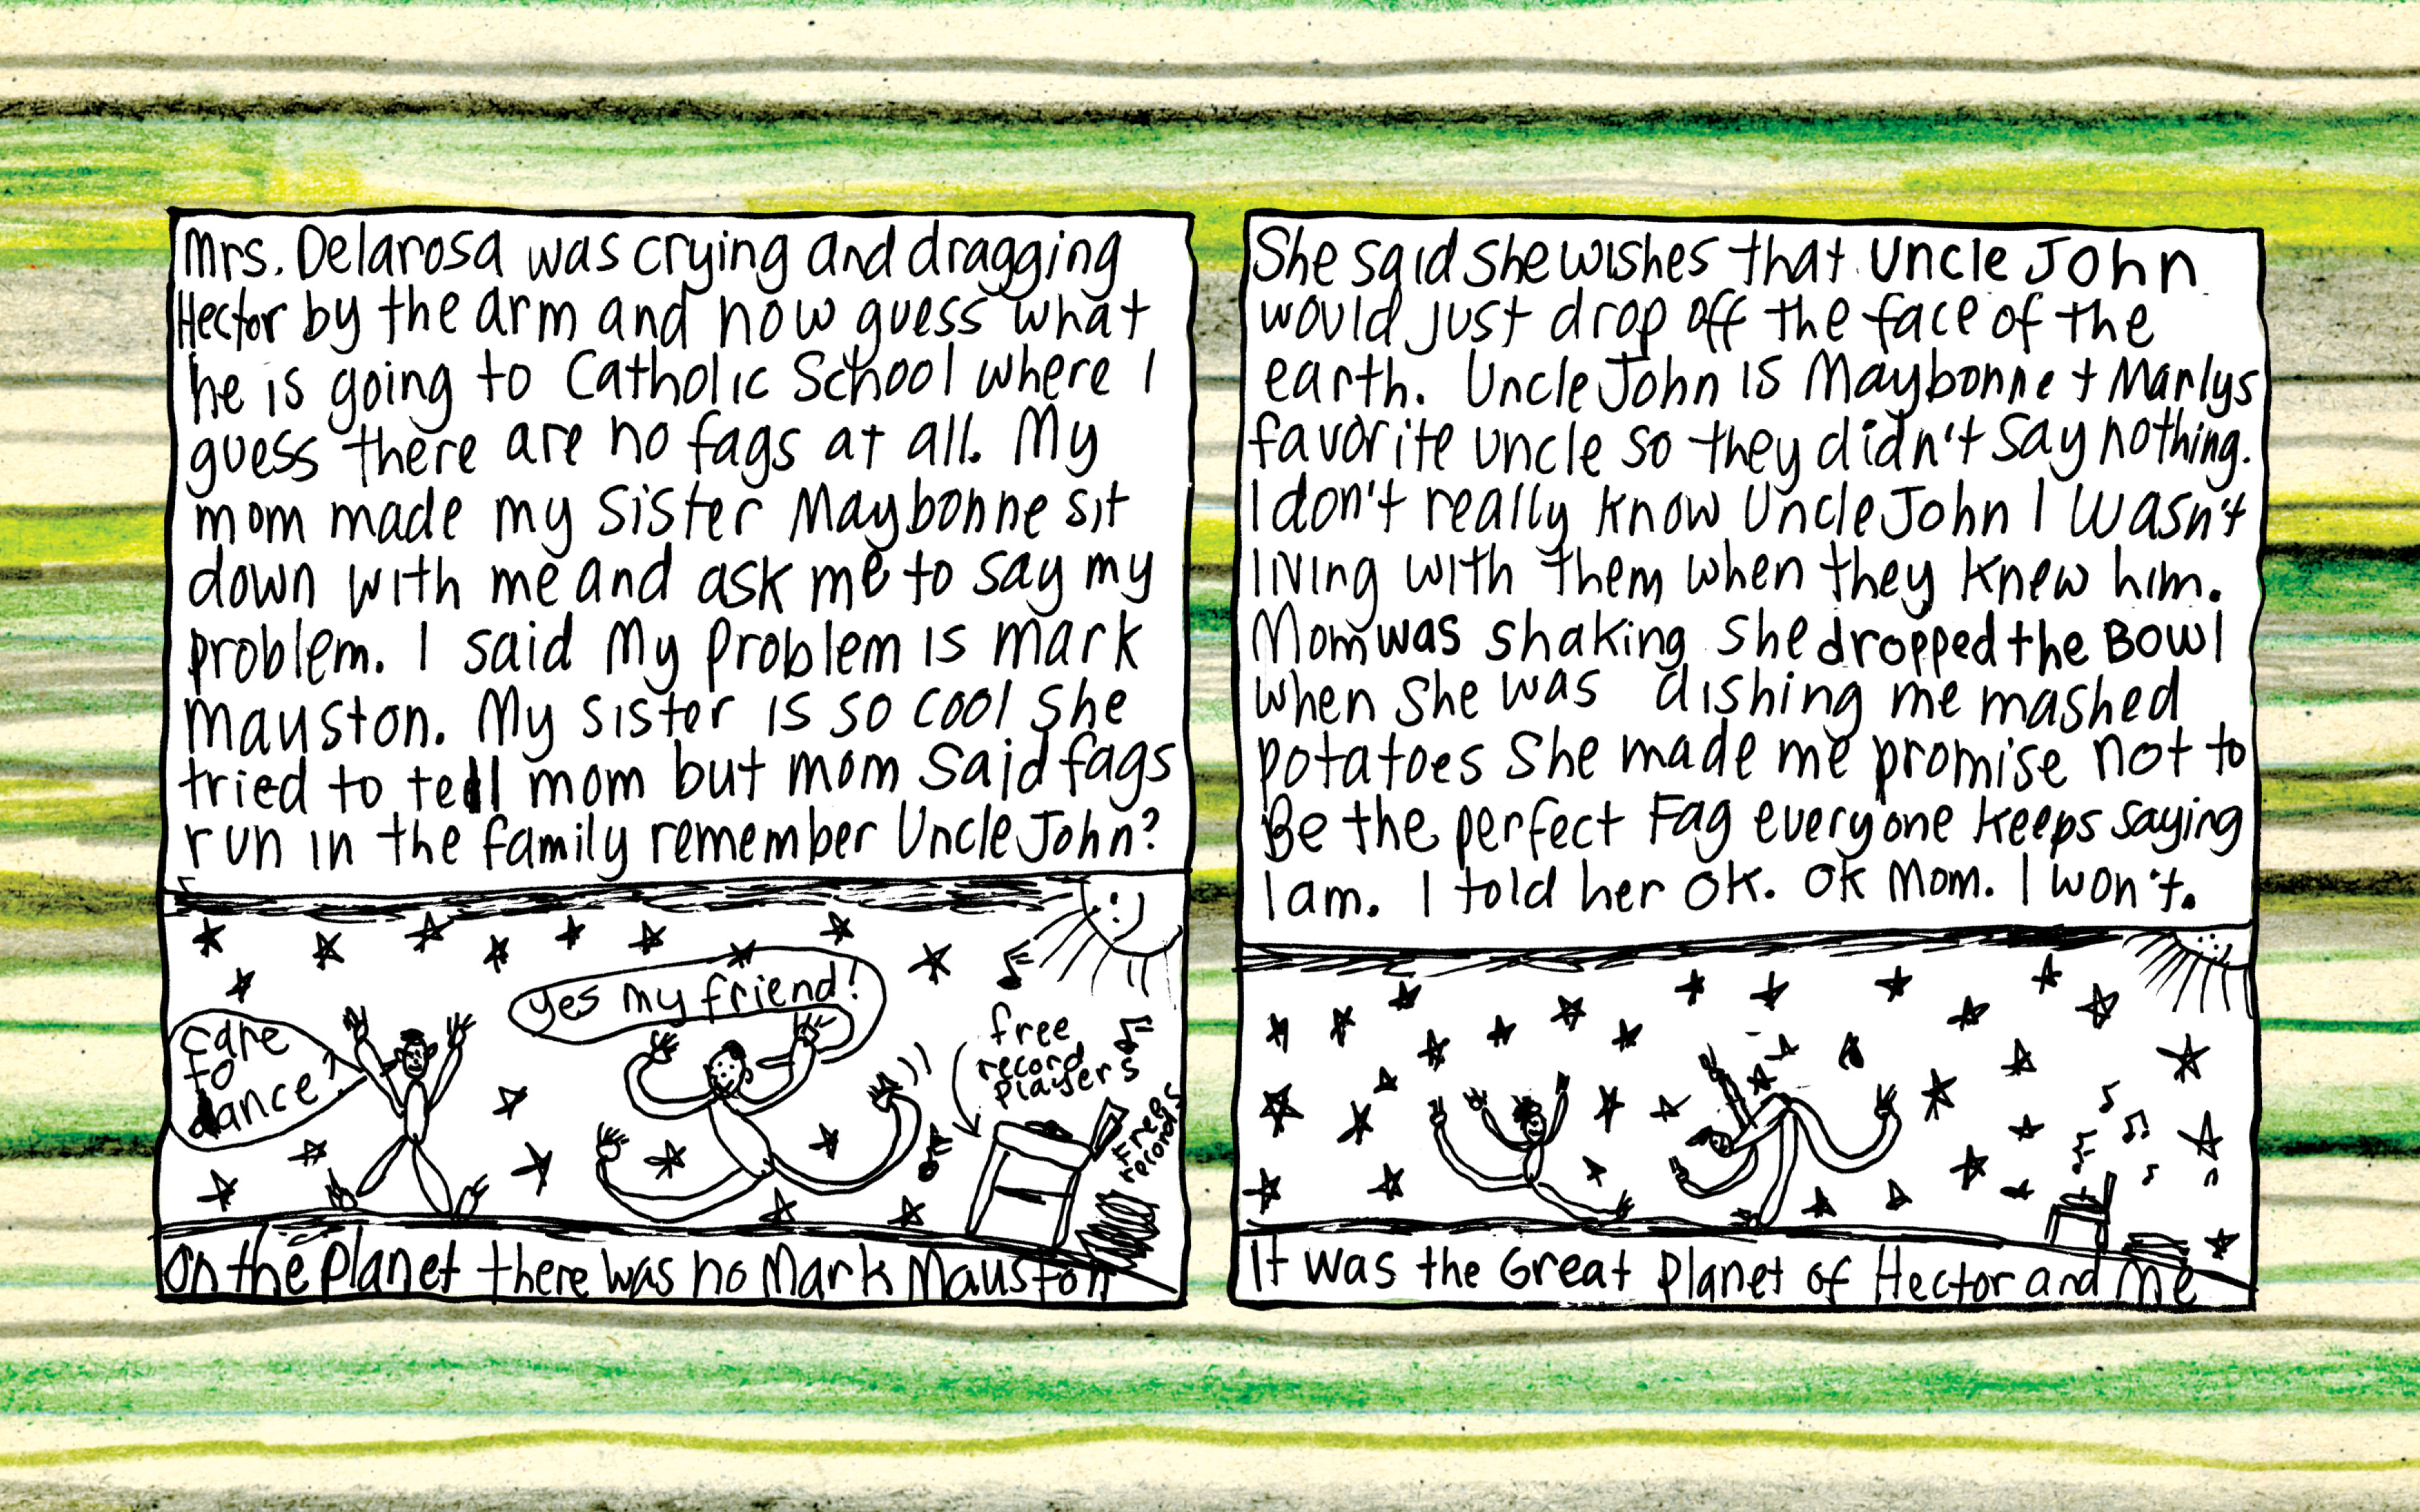 Mrs. Delarosa was crying and dragging
Hector by the arm and now guess what
he is going to Catholic School where I
guess there are no fags at all. My
mom made my sister Maybonne sit
down with me and ask me to say my
problem. I said My problem is mark
mauston. My sister is so cool she
tried to tell mom but mom said fags
run in the family remember Uncle John?
care
to
dance?
yes my friend!
free
record
players
Free
records
On the planet there was no Mark Mauston
She said she wishes that Uncle John
would just drop off the face of the
earth. Uncle John is Maybonne + Marlys
favorite uncle so they didn't say nothing.
I don't really know Uncle John I wasn't
living with them when they knew him.
Mom was shaking she dropped the Bowl
when she was dishing me mashed
potatoes she made me promise not to
Be the perfect Fag everyone keeps saying
I am. I told her ok. ok Mom. I won't.
It was the Great Planet of Hector and Me